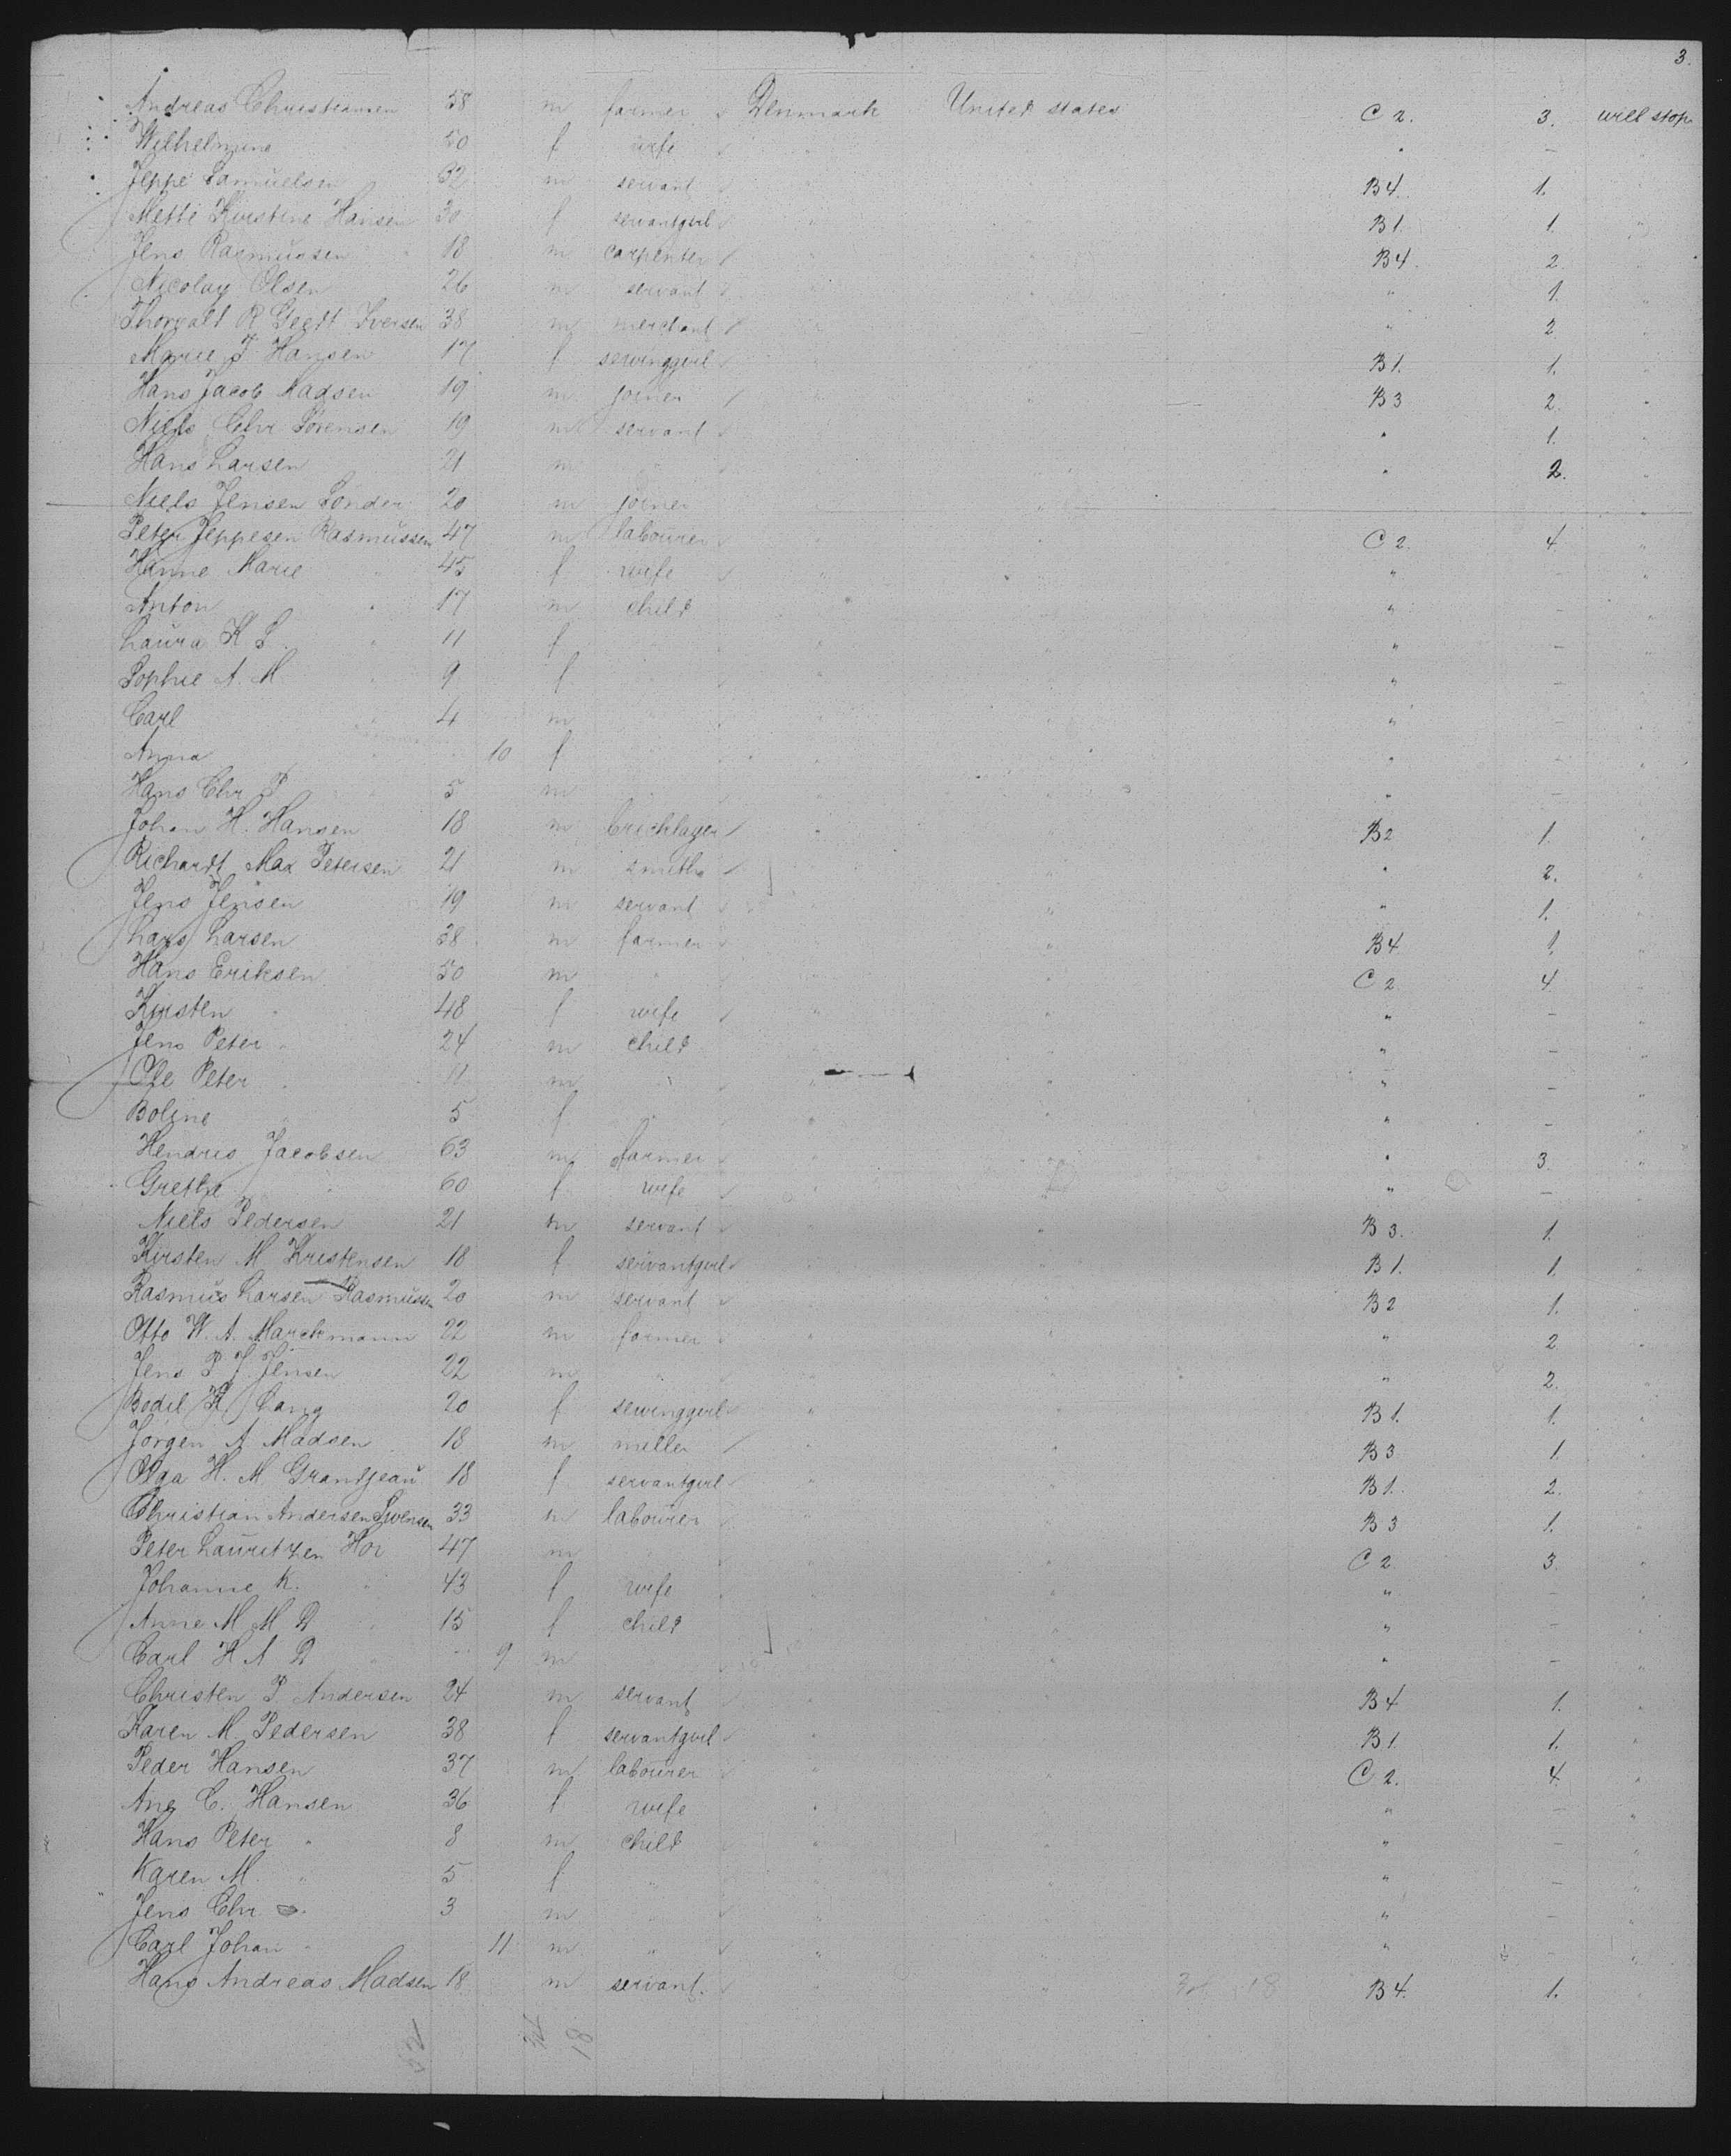 3.
Andreas Christiansen 58 m farmer Denmark United states C 2. 3. will stop
Wilhelmine 50 f wife " — "
Jeppe Samuelsen 32 m servant B4. 1. "
Mette Kirstine Hansen 30 f servantgirl B1. 1. "
Jens Rasmussen 18 m carpenter B4. 2. "
Nicolay Olsen 26 m servant " 1. "
Thorvalt R Geedt Iversen 38 m merchant " 2 "
Marie J Hansen 17 f sewinggirl B1. 1. "
Hans Jacob Madsen 19 m joiner B3 2. "
Niels Chr Sörensen 19 m servant " 1. "
Hans Larsen 21 m " " 2. "
Niels Jensen Sönder 20 m joiner
Peter Jeppesen Rasmussen 47 m labourer C 2. 4. "
Hanne Marie " 45 f wife " — "
Anton " 17 m child " — "
Laura K S. " 11 f " " — "
Sophie A. M. " 9 f " " — "
Carl " 4 m " " — "
Anna " 10 f " " — "
Hans Chr P " 5 m " " — "
Johan H. Hansen 18 m bricklayer B2 1. "
Richardt Max Petersen 21 m smith " 2. "
Jens Jensen 19 m servant " 1. "
Lars Larsen 38 m farmer B4 1. "
Hans Eriksen 50 m " C 2 4 "
Kirsten " 48 f wife " — "
Jens Peter " 24 m child " — "
Ole Peter " 11 m " " — "
Boline " 5 f " " — "
Hendris Jacobsen 63 m farmer " 3. "
Grethe " 60 f wife " — "
Niels Pedersen 21 m servant B 3. 1. "
Kirsten M Kristensen 18 f servantgirl B1. 1. "
Rasmus Larsen Rasmussen 20 m servant B2 1. "
Otto W. A. Marckmann 22 m farmer " 2 "
Jens P. J. Jensen 22 m " " 2. "
Bodil K Lang 20 f sewinggirl B1. 1. "
Jörgen A Madsen 18 m miller B3 1. "
Olga H. M Grandjean 18 f servantgirl B1. 2. "
Christian Andersen Svensen 33 m labourer B 3 1. "
Peter Lauritzen Hor 47 m " C 2 3. "
Johanne K. " 43 f wife " — "
Anne M M D " 15 f child " — "
Carl H A D " 9 m " " — "
Christen P. Andersen 24 m servant B4 1. "
Karen M. Pedersen 38 f servantgirl B1. 1. "
Peder Hansen 37 m labourer C 2. 4. "
Ane C. Hansen 36 f wife " — "
Hans Peter " 8 m child " — "
Karen M. " 5 f " " — "
Jens Chr " 3 m " " — "
Carl Johan " 11 m " " — "
Hans Andreas Madsen 18 m servant. B4. 1. "
52 34 18